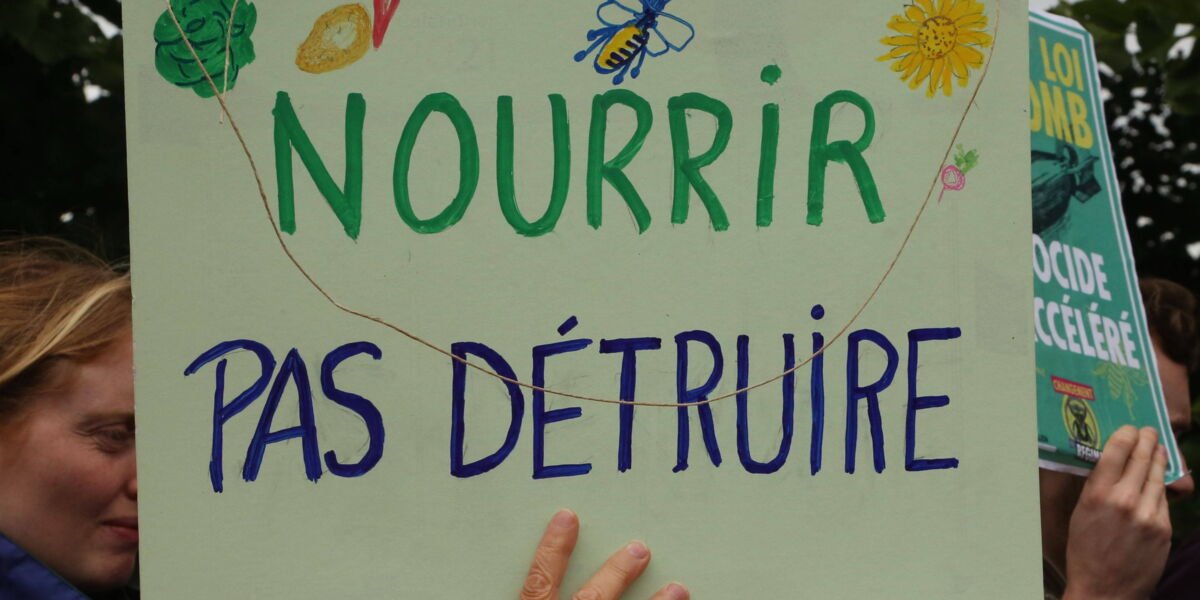 NOURRIR
PAS DÉTRUIRE
LOI
OMB
OCIDE
CCÉLÉRÉ
CHANGEMENT